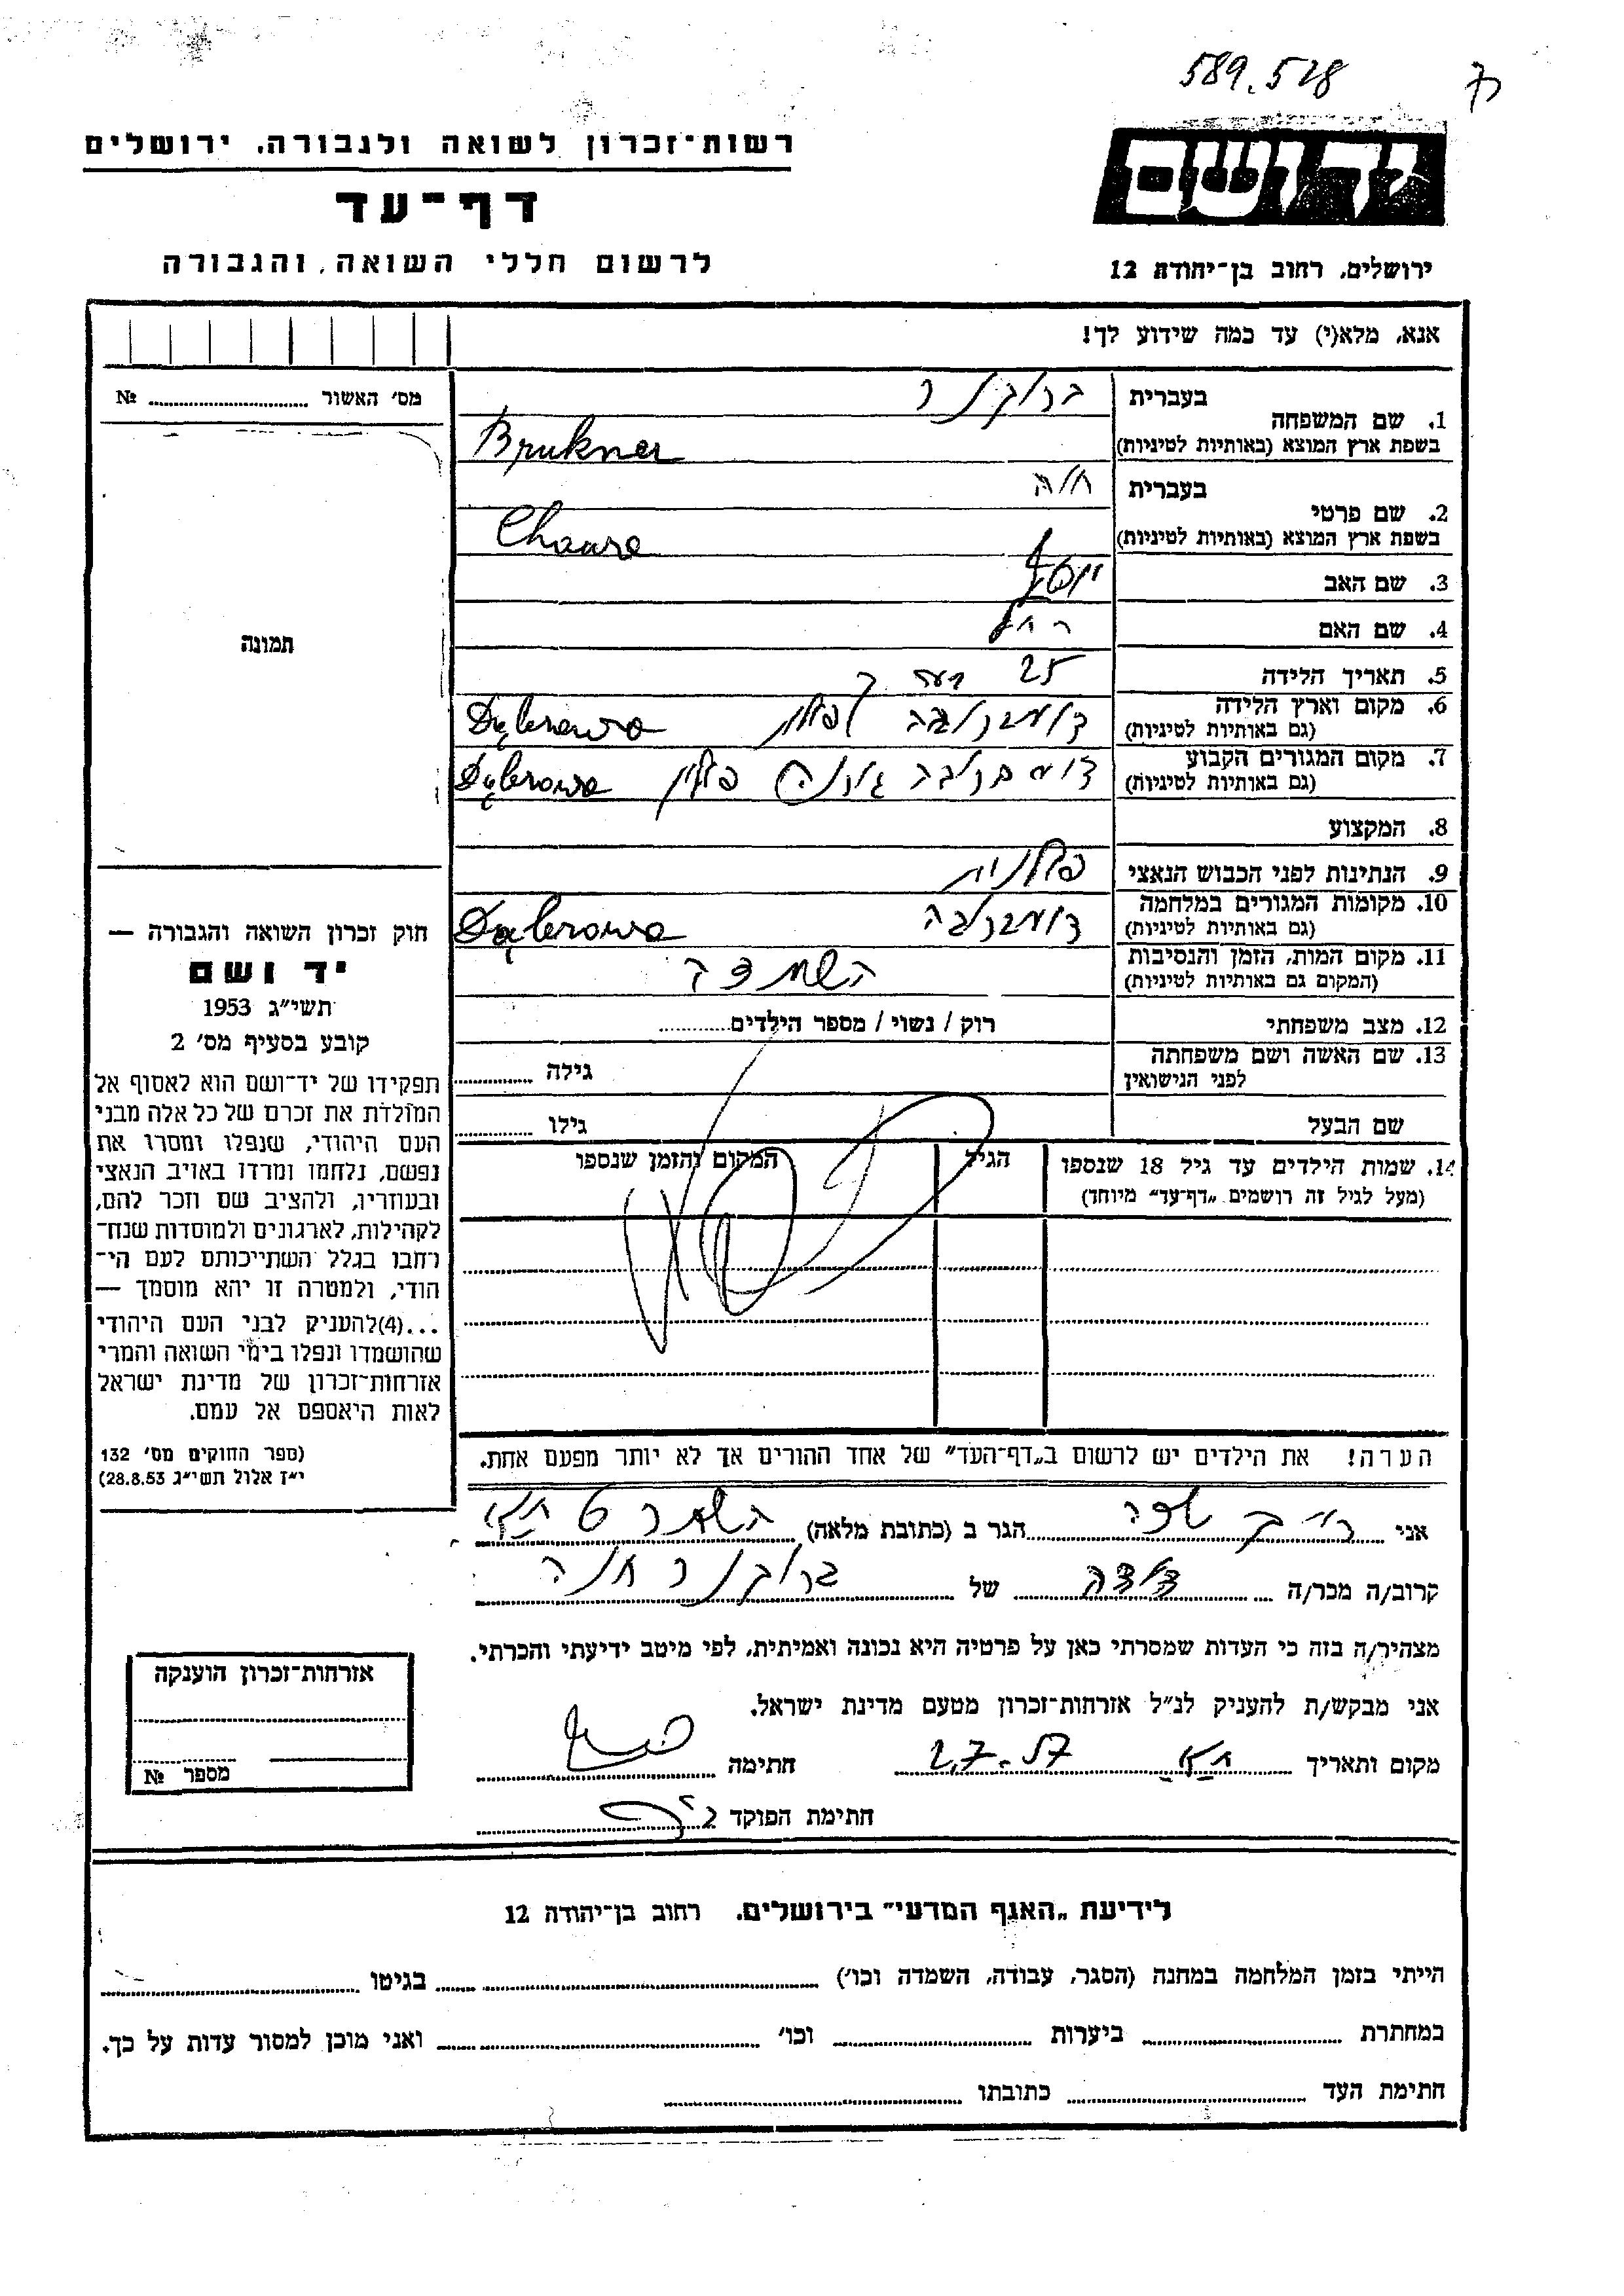 589.528
יד ושם
רשות־זכרון לשואה ולגבורה, ירושלים
דף־עד
לרשום חללי השואה והגבורה
ירושלים, רחוב בן־יהודה 12
אנא, מלא(י) עד כמה שידוע לך!
מס׳ האשור № ........
1. שם המשפחה
בעברית ברוקנר
בשפת ארץ המוצא (באותיות לטיניות) Brukner
2. שם פרטי
בעברית חנה
בשפת ארץ המוצא (באותיות לטיניות)
3. שם האב יוסף
4. שם האם רחל
5. תאריך הלידה 25
6. מקום וארץ הלידה דומברובה פולין Dąbrowa
(גם באותיות לטיניות)
7. מקום המגורים הקבוע דומברובה פולין Dąbrowa
(גם באותיות לטיניות)
8. המקצוע
9. הנתינות לפני הכבוש הנאצי פולנית
10. מקומות המגורים במלחמה דומברובה Dąbrowa
(גם באותיות לטיניות)
11. מקום המות, הזמן והנסיבות
(המקום גם באותיות לטיניות)
12. מצב משפחתי רוק / נשוי / מספר הילדים........
13. שם האשה ושם משפחתה
לפני הנישואין
גילה ........
שם הבעל גילו ........
14. שמות הילדים עד גיל 18 שנספו
(מעל לגיל זה רושמים „דף־עד" מיוחד)
הגיל
המקום והזמן שנספו
תמונה
חוק זכרון השואה והגבורה —
יד ושם
תשי״ג 1953
קובע בסעיף מס׳ 2
תפקידו של יד־ושם הוא לאסוף אל
המולדת את זכרם של כל אלה מבני
העם היהודי, שנפלו ומסרו את
נפשם, נלחמו ומרדו באויב הנאצי
ובעוזריו, ולהציב שם וזכר להם,
לקהילות, לארגונים ולמוסדות שנח־
רחבו בגלל השתייכותם לעם הי־
הודי, ולמטרה זו יהא מוסמך —
...(4)להעניק לבני העם היהודי
שהושמדו ונפלו בימי השואה והמרי
אזרחות־זכרון של מדינת ישראל
לאות היאספם אל עמם.
(ספר החוקים מס׳ 132
י״ז אלול תשי״ג 28.8.53)
הערה! את הילדים יש לרשום ב„דף־העד" של אחד ההורים אך לא יותר מפעם אחת.
אני ........ הגר ב (כתובת מלאה)
קרוב/ה מכר/ה דודה של ברוקנר חנה
מצהיר/ה בזה כי העדות שמסרתי כאן על פרטיה היא נכונה ואמיתית, לפי מיטב ידיעתי והכרתי.
אני מבקש/ת להעניק לנ״ל אזרחות־זכרון מטעם מדינת ישראל.
מקום ותאריך ת״א 2.7.57 חתימה
חתימת הפוקד
אזרחות־זכרון הוענקה
מספר №
לידיעת „האגף המדעי" בירושלים, רחוב בן־יהודה 12
הייתי בזמן המלחמה במחנה (הסגר, עבודה, השמדה וכו׳) ........ בגיטו ........
במחתרת ........ ביערות ........ וכו׳ ........ ואני מוכן למסור עדות על כך.
חתימת העד ........ כתובתו ........